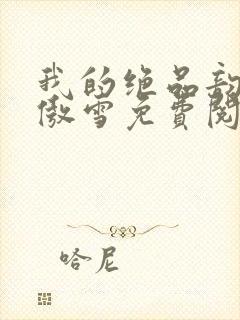 我的绝品
傲雪免费阅
哈尼